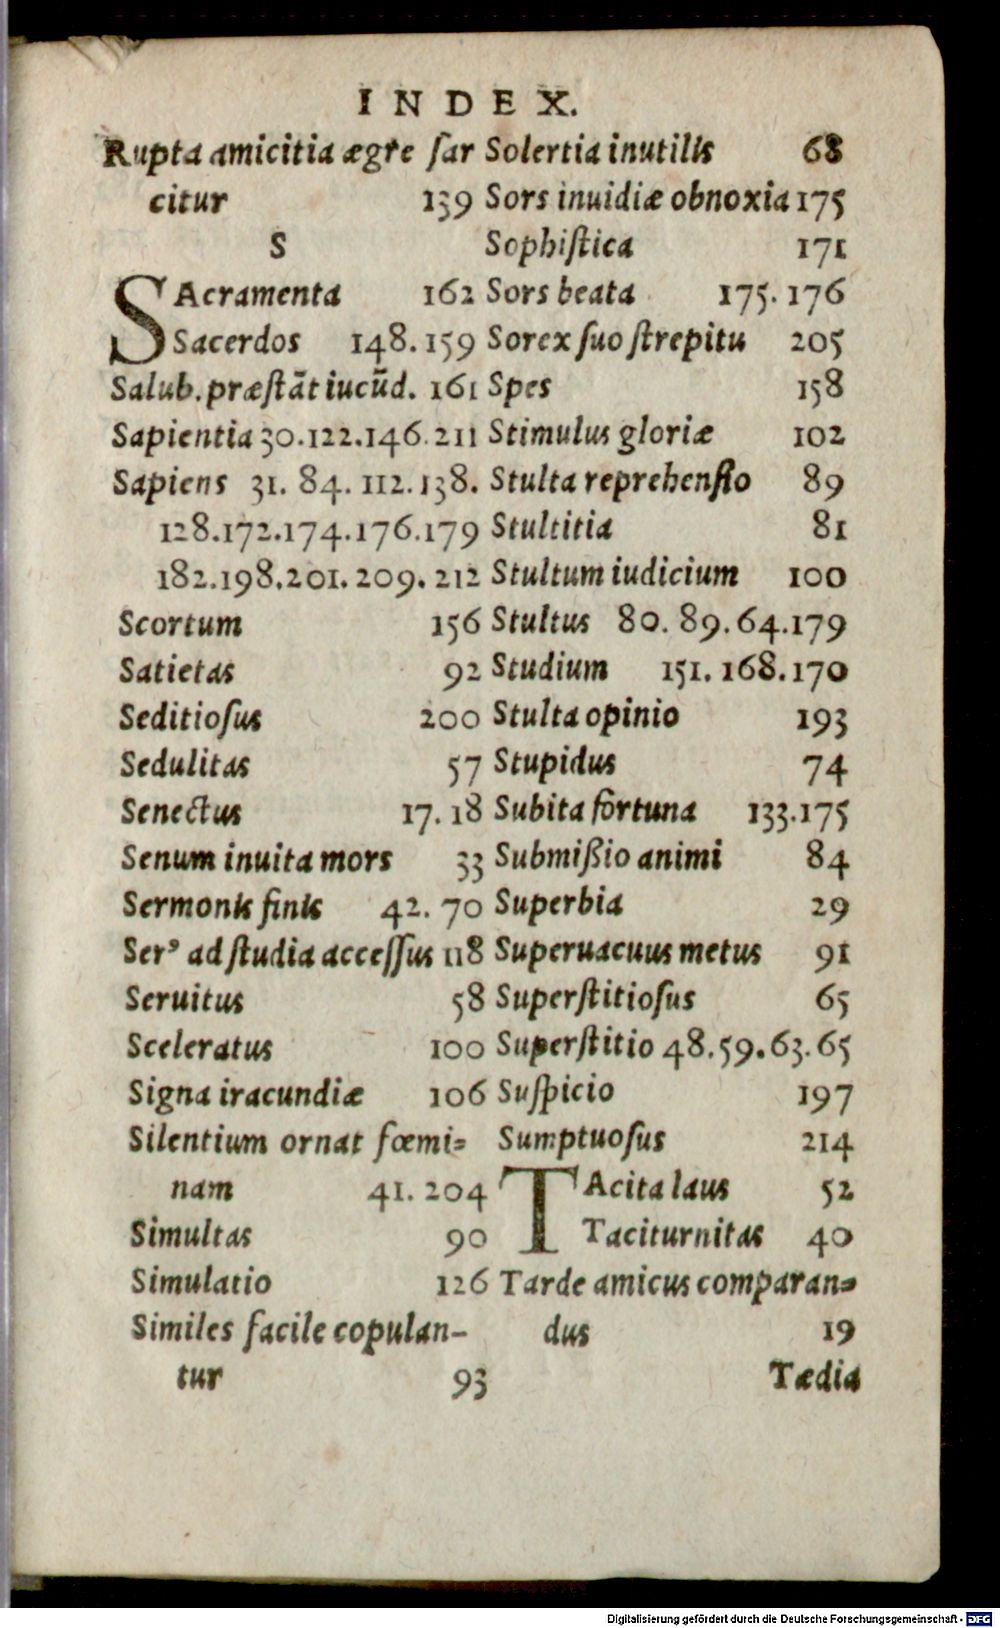 INDEX.
Rupta amicitia ægre ſar
citur 139
S
SAcramenta 162
Sacerdos 148. 159
Salub. præſtãt iucũd. 161
Sapientia 30.122.146.211
Sapiens 31. 84. 112. 138.
128.172.174.176.179
182.198.201. 209. 212
Scortum 156
Satietas 92
Seditioſus 200
Sedulitas 57
Senectus 17. 18
Senum inuita mors 33
Sermonis finis 42. 70
Serꝰ ad ſtudia acceſſus 118
Seruitus 58
Sceleratus 100
Signa iracundiæ 106
Silentium ornat fœmi=
nam 41. 204
Simultas 90
Simulatio 126
Similes facile copulan-
tur 93
Solertia inutilis 68
Sors inuidiæ obnoxia 175
Sophiſtica 171
Sors beata 175. 176
Sorex ſuo ſtrepitu 205
Spes 158
Stimulus gloriæ 102
Stulta reprehenſio 89
Stultitia 81
Stultum iudicium 100
Stultus 80. 89. 64.179
Studium 151. 168.170
Stulta opinio 193
Stupidus 74
Subita fortuna 133.175
Submißio animi 84
Superbia 29
Superuacuus metus 91
Superſtitioſus 65
Superſtitio 48.59.63.65
Suſpicio 197
Sumptuoſus 214
TAcita laus 52
Taciturnitas 40
Tarde amicus comparan=
dus 19
Tædia
Digitalisierung gefördert durch die Deutsche Forschungsgemeinschaft - DFG